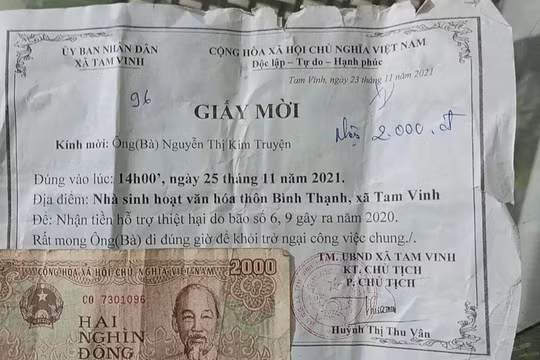 ỦY BAN NHÂN DÂN
XÃ TAM VINH
CỘNG HÒA XÃ HỘI CHỦ NGHĨA VIỆT NAM
Độc lập – Tự do – Hạnh phúc
Tam Vinh, ngày 23 tháng 11 năm 2021
96
GIẤY MỜI
Nhận 2.000.đ
Kính mời: Ông(Bà) Nguyễn Thị Kim Truyện
Đúng vào lúc: 14h00’, ngày 25 tháng 11 năm 2021.
Địa điểm: Nhà sinh hoạt văn hóa thôn Bình Thạnh, xã Tam Vinh
Để: Nhận tiền hỗ trợ thiệt hại do bão số 6, 9 gây ra năm 2020.
Rất mong Ông(Bà) đi đúng giờ để khỏi trở ngại công việc chung./.
TM. UBND XÃ TAM VINH
KT. CHỦ TỊCH
P. CHỦ TỊCH
Huỳnh Thị Thu Vân
CỘNG HÒA XÃ HỘI CHỦ NGHĨA VIỆT NAM
2000
CO 7301096
HAI
NGHÌN
ĐỒNG